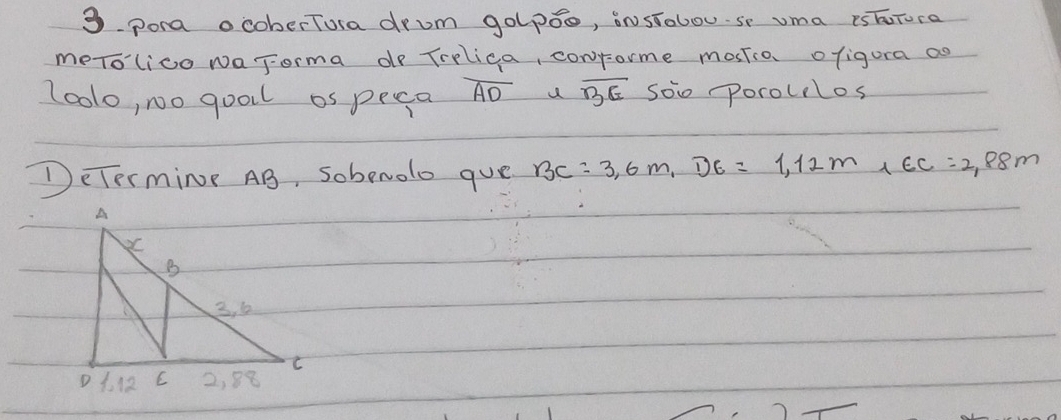 3. para a cobertura de um galpão, instalou-se uma estrutura
metálica na forma de Treliça, conforme mostra a figura ao
lado, no qual as peça AD e BE são paralelas
1) Determine AB, Sabendo que BC = 3,6 m, DE = 1,12 m e EC = 2,88 m
A
x
B
3,6
D 1,12 E 2,88 C